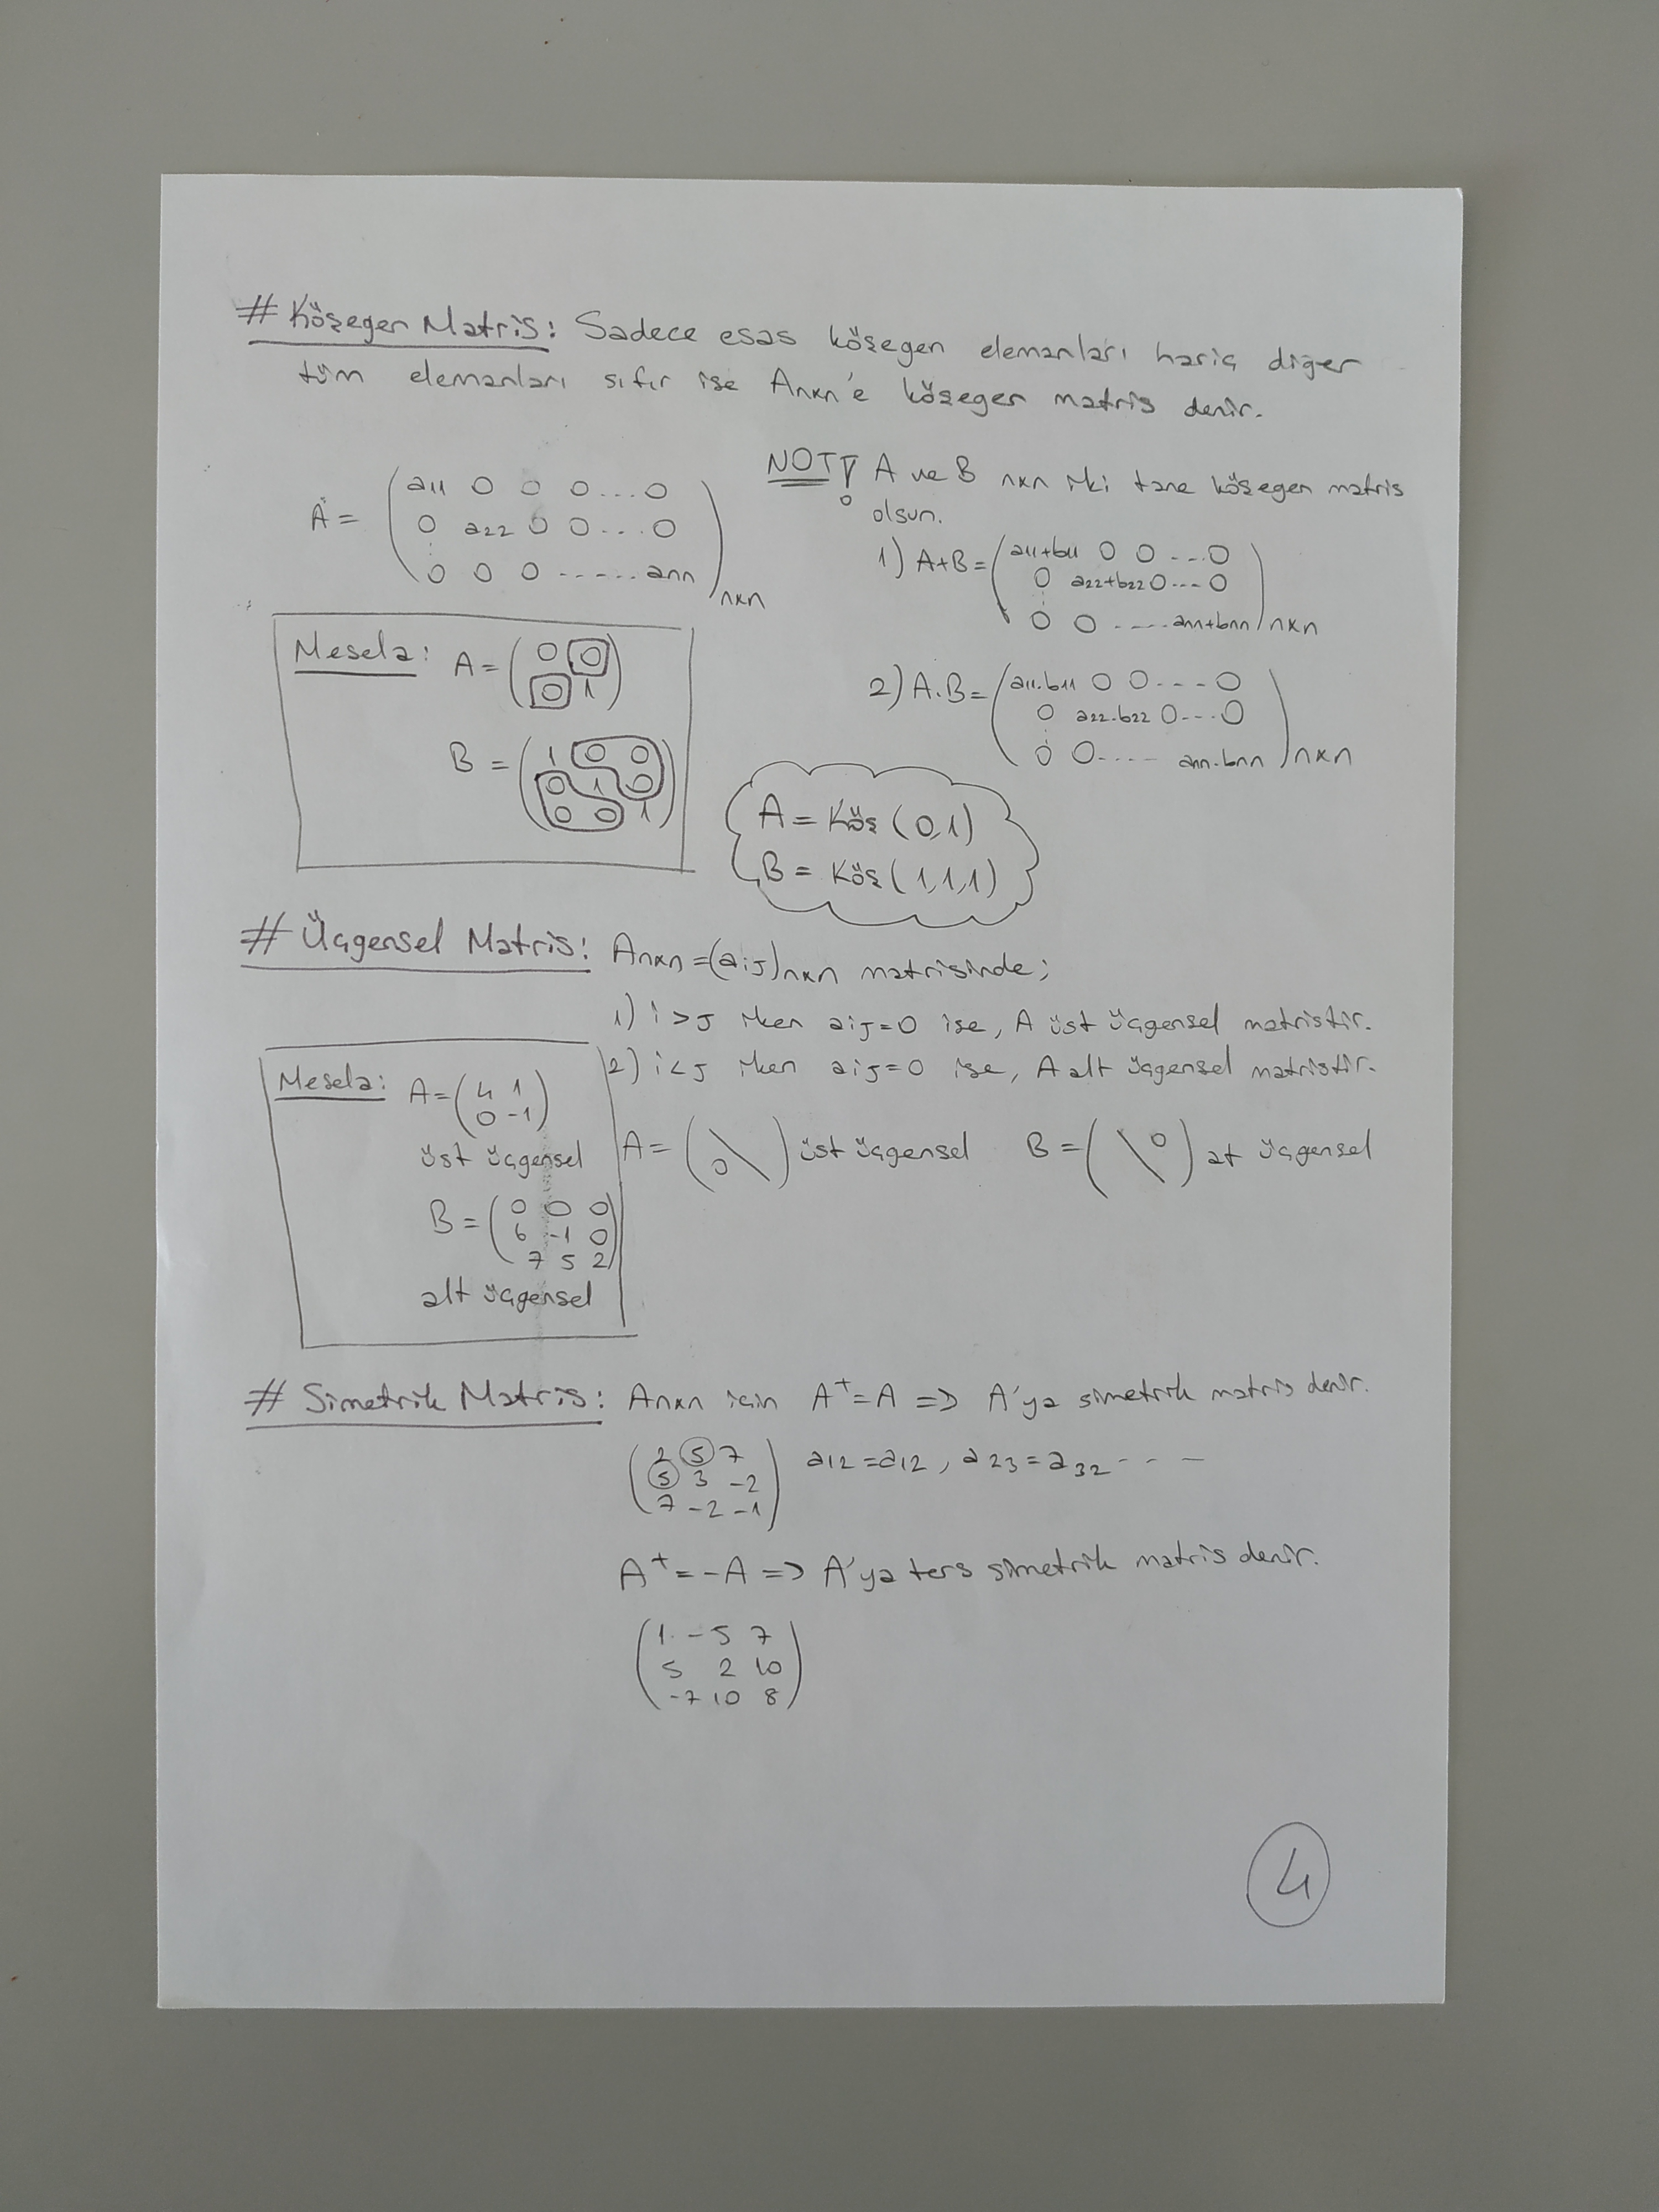 # Köşegen Matris: Sadece esas köşegen elemanları hariç diğer
tüm elemanları sıfır ise Anxn'e köşegen matris denir.
A = ( a11 0 0 0...0
0 a22 0 0...0
0 0 0 ------ann )nxn
NOT! A ve B nxn iki tane köşegen matris
olsun.
1) A+B = ( a11+b11 0 0 ---0
0 a22+b22 0---0
0 0 ----ann+bnn )nxn
2) A.B = ( a11.b11 0 0---0
0 a22.b22 0---0
0 0---- ann.bnn )nxn
Mesela: A = ( 0 0
0 1 )
B = ( 1 0 0
0 1 0
0 0 1 )
A = Köş (0,1)
B = Köş (1,1,1)
# Üçgensel Matris: Anxn = (aij)nxn matrisinde;
1) i>j iken aij=0 ise, A üst üçgensel matristir.
2) i<j iken aij=0 ise, A alt üçgensel matristir.
Mesela: A = ( 4 1
0 -1 )
üst üçgensel
B = ( 0 0 0
6 -1 0
7 5 2 )
alt üçgensel
A = ( 0 \ ) üst üçgensel B = ( \ 0 ) at üçgensel
# Simetrik Matris: Anxn için A^t = A => A'ya simetrik matris denir.
( 2 5 7
5 3 -2
7 -2 -1 ) a12=a12, a23=a32 - - -
A^t = -A => A'ya ters simetrik matris denir.
( 1 -5 7
5 2 10
-7 10 8 )
4